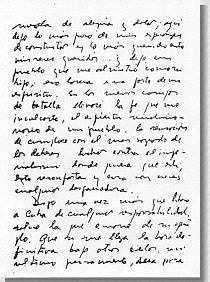 mezcla de alegría y dolor, aquí
dejo lo más puro de mis esperanzas
de constructor y lo más querido entre
mis seres queridos... y dejo un
pueblo que me admitió como un
hijo; eso lacera una parte de mi
espíritu. En los nuevos campos
de batalla llevaré la fe que me
inculcaste, el espíritu revolucio-
nario de mi pueblo, la sensación
de cumplir con el más sagrado de
los deberes: luchar contra el impe-
rialismo donde quiera que esté;
esto reconforta y cura con creces
cualquier desgarradura.
Digo una vez más que libero
a Cuba de cualquier responsabilidad,
salvo la que emane de su ejem-
plo. Que si me llega la hora de-
finitiva bajo otros cielos, mi
último pensamiento, será para